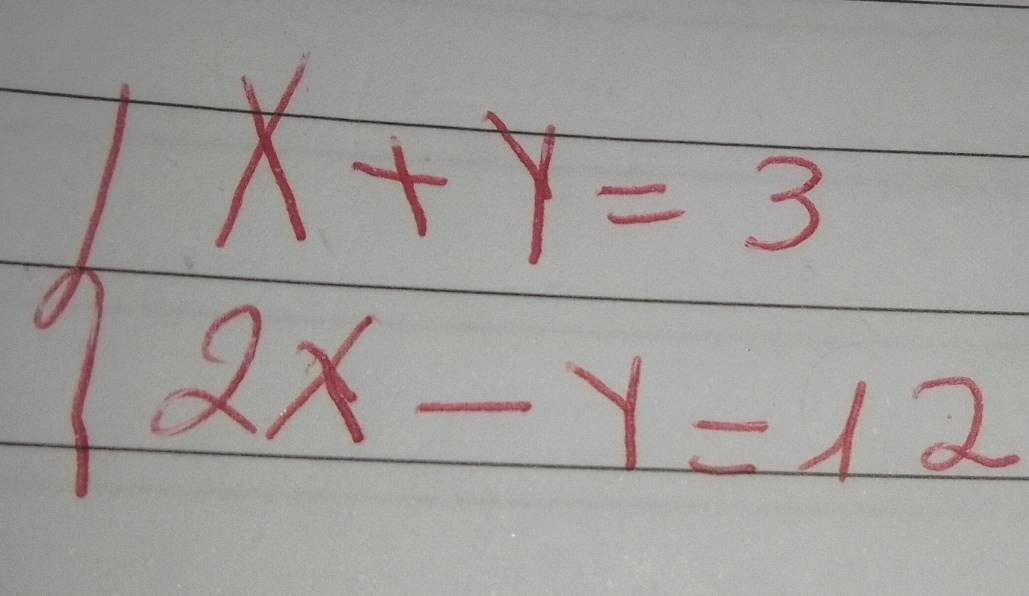 X + Y = 3
2X - Y = 12